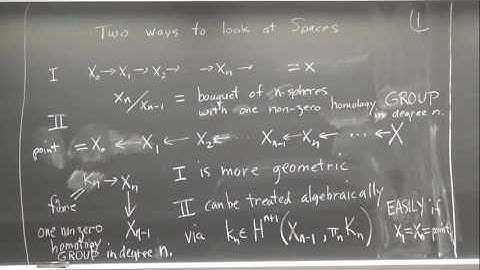 Two ways to look at Spaces
1
I X₀ → X₁ → X₂ → → Xₙ → = X
Xₙ/Xₙ₋₁ = bouquet of n-spheres
with one non-zero homology GROUP
in degree n.
II
point = X₀ ← X₁ ← X₂ ← Xₙ₋₁ ← Xₙ ← ... ← X
Kₙ → Xₙ
fibre
↓
Xₙ₋₁
one non zero
homotopy
GROUP in degree n.
I is more geometric
II can be treated algebraically
via kₙ ∈ Hⁿ⁺¹(Xₙ₋₁, πₙKₙ)
EASILY if
X₁=X₀=point